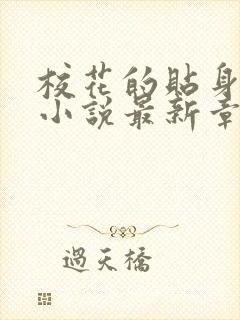 校花的貼身
小說最新章
過天橋